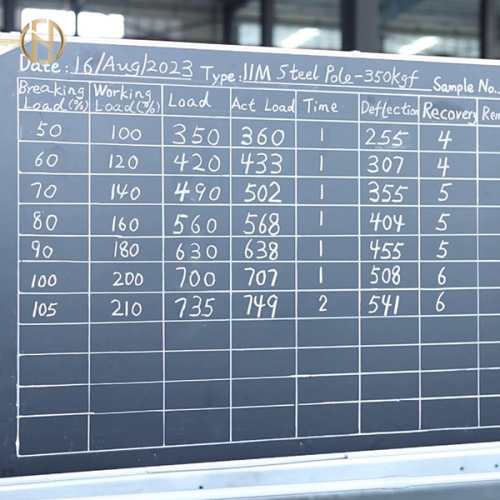 Date: 16/Aug/2023 Type: 11M Steel Pole-350kgf Sample No.
Breaking Load(%) Working Load(%) Load Act Load Time Deflection Recovery Rem
50 100 350 360 1 255 4
60 120 420 433 1 307 4
70 140 490 502 1 355 5
80 160 560 568 1 404 5
90 180 630 638 1 455 5
100 200 700 707 1 508 6
105 210 735 749 2 541 6